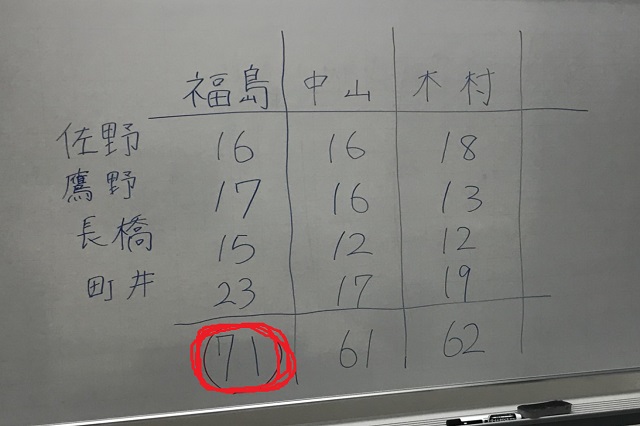 福島 中山 木村
佐野 16 16 18
鷹野 17 16 13
長橋 15 12 12
町井 23 17 19
(71) 61 62